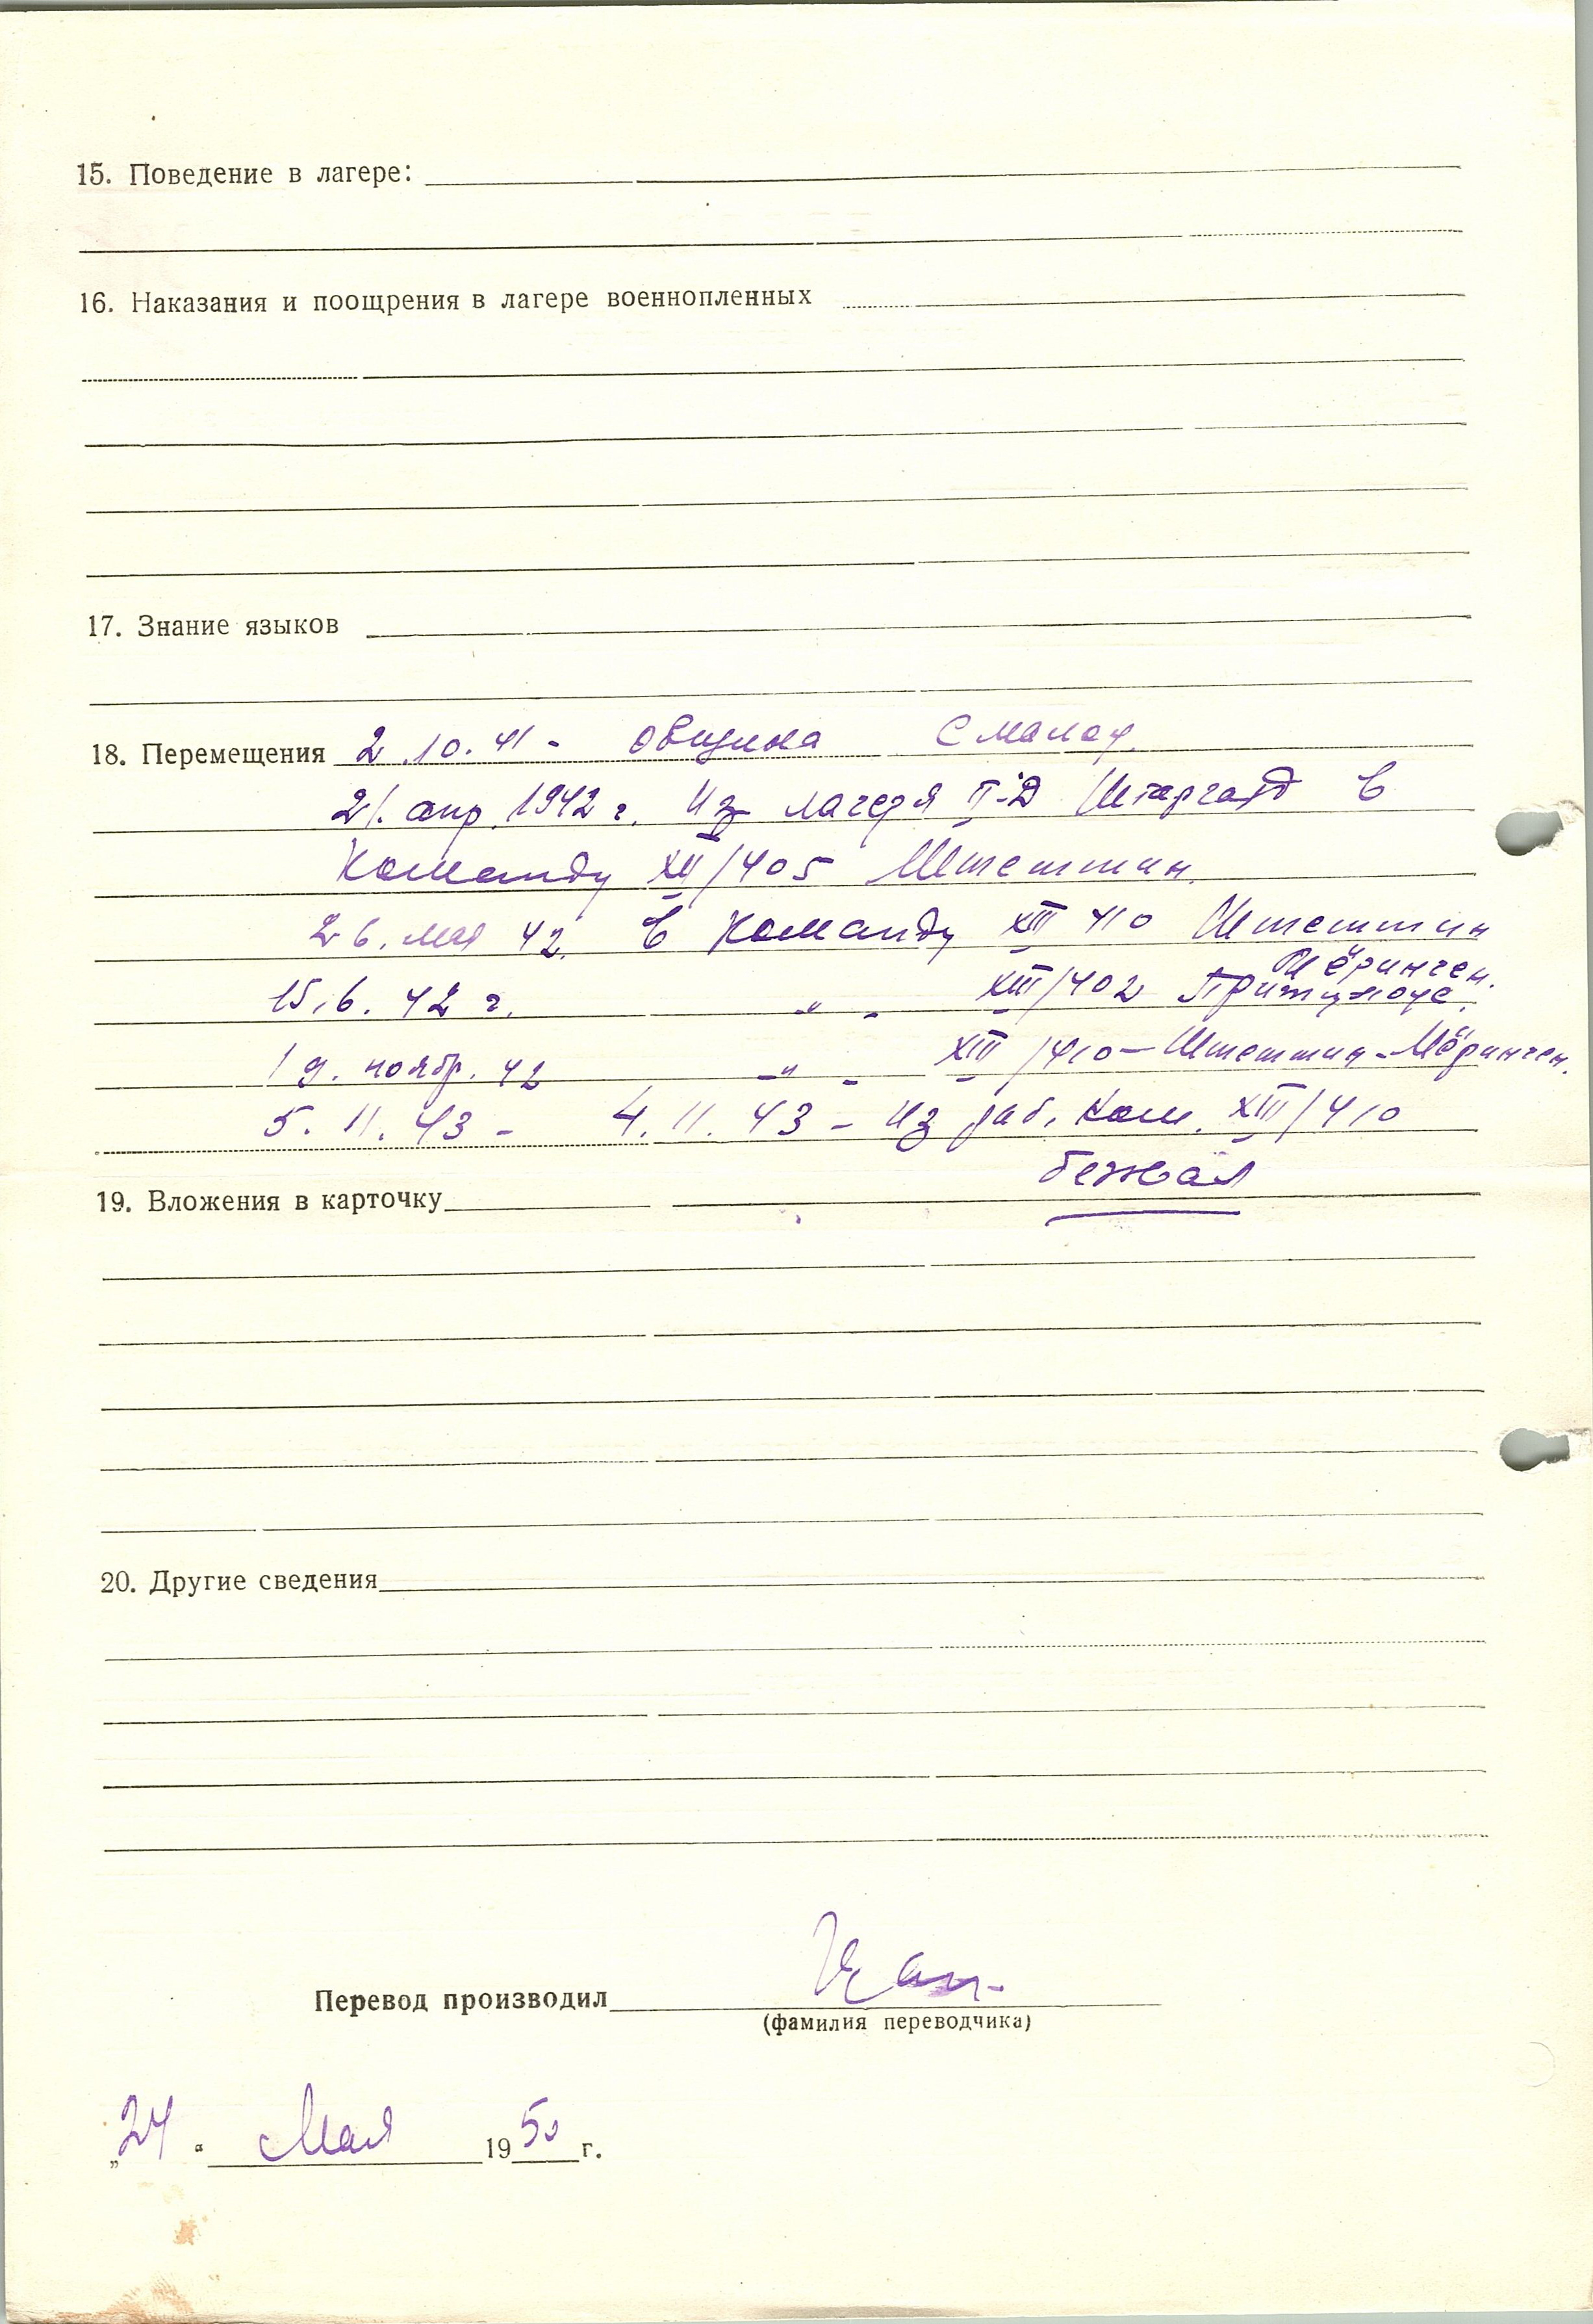 15. Поведение в лагере:
16. Наказания и поощрения в лагере военнопленных
17. Знание языков
18. Перемещения 2.10.41 - община
21. апр. 1942 г. Из лагеря II-Д Штаргард в
Команду XII/405 Штеттин.
26. мая 42. в Команду XIII 410 Штеттин
Мёринген.
15.6. 42 г. " - XIII/402
19. ноябр. 42 - " - XIII/410 - Штеттин - Мёринген.
5. 11. 43 - 4. 11. 43 - Из раб. ком. XIII/410
бежал
19. Вложения в карточку
20. Другие сведения
Перевод производил
(фамилия переводчика)
„24" Мая 1950 г.